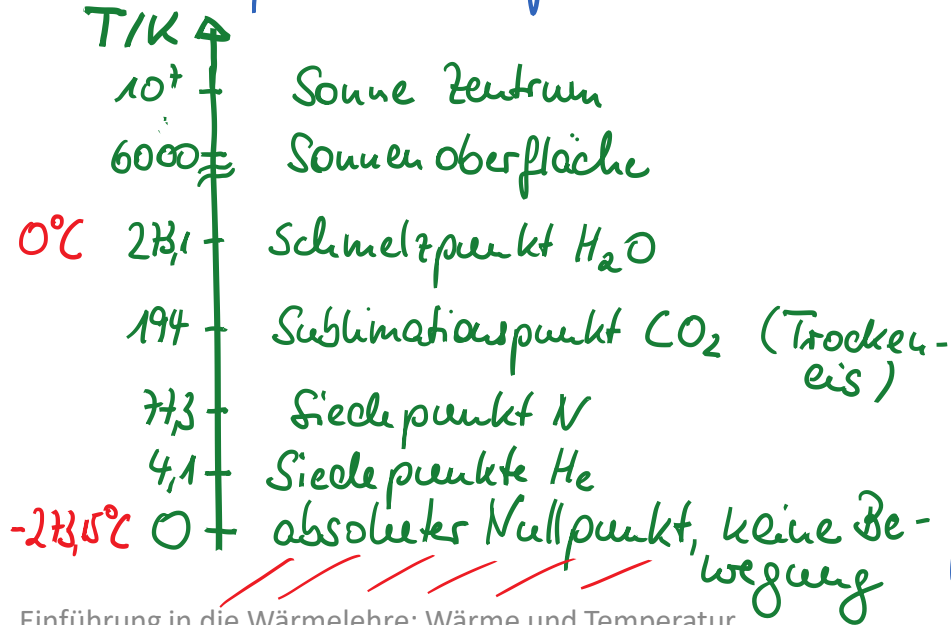 T/K
10⁷ Sonne Zentrum
6000 Sonnenoberfläche
0°C 273,1 Schmelzpunkt H₂O
194 Sublimationspunkt CO₂ (Trocken-
eis)
77,3 Siedepunkt N
4,1 Siedepunkte He
-273,15°C 0 absoluter Nullpunkt, keine Be-
wegung
Einführung in die Wärmelehre: Wärme und Temperatur